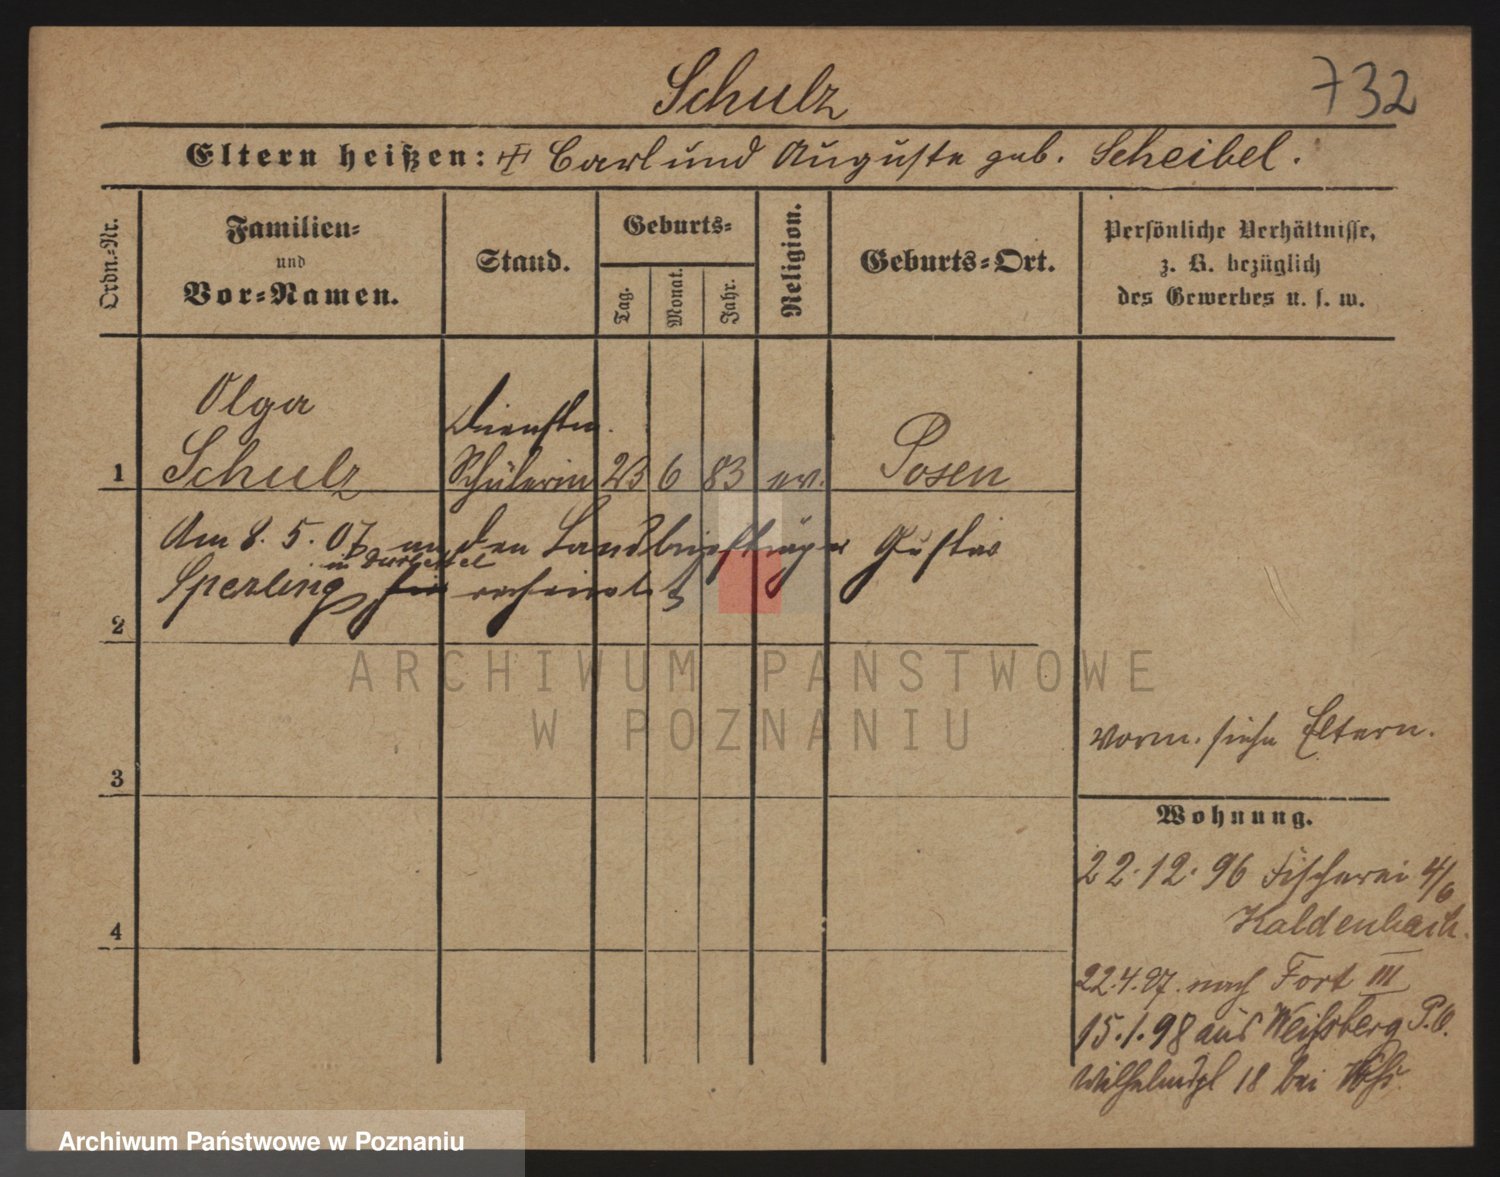 Schulz
732
Eltern heißen: Carl und Auguste geb. Scheibel.
Ordn.-Nr.
Familien-
und
Vor-Namen.
Stand.
Geburts-
Tag.
Monat.
Jahr.
Religion.
Geburts-Ort.
Persönliche Verhältnisse,
z. B. bezüglich
des Gewerbes u. s. w.
Olga
Dienstm.
1 Schulz Schülerin 23 6 83 ev. Posen
Am 8. 5. 07 an den Landbriefträger Gustav
in
Sperling verheiratet
2
ARCHIWUM PAŃSTWOWE
W POZNANIU
vorm. siehe Eltern.
3
Wohnung.
22.12.96 Fischerei 4/6
Kaldenbach.
4
22.4.97. nach Fort III
15.1.98 aus Weißberg P.O.
Wilhelmspl 18 bei
Archiwum Państwowe w Poznaniu